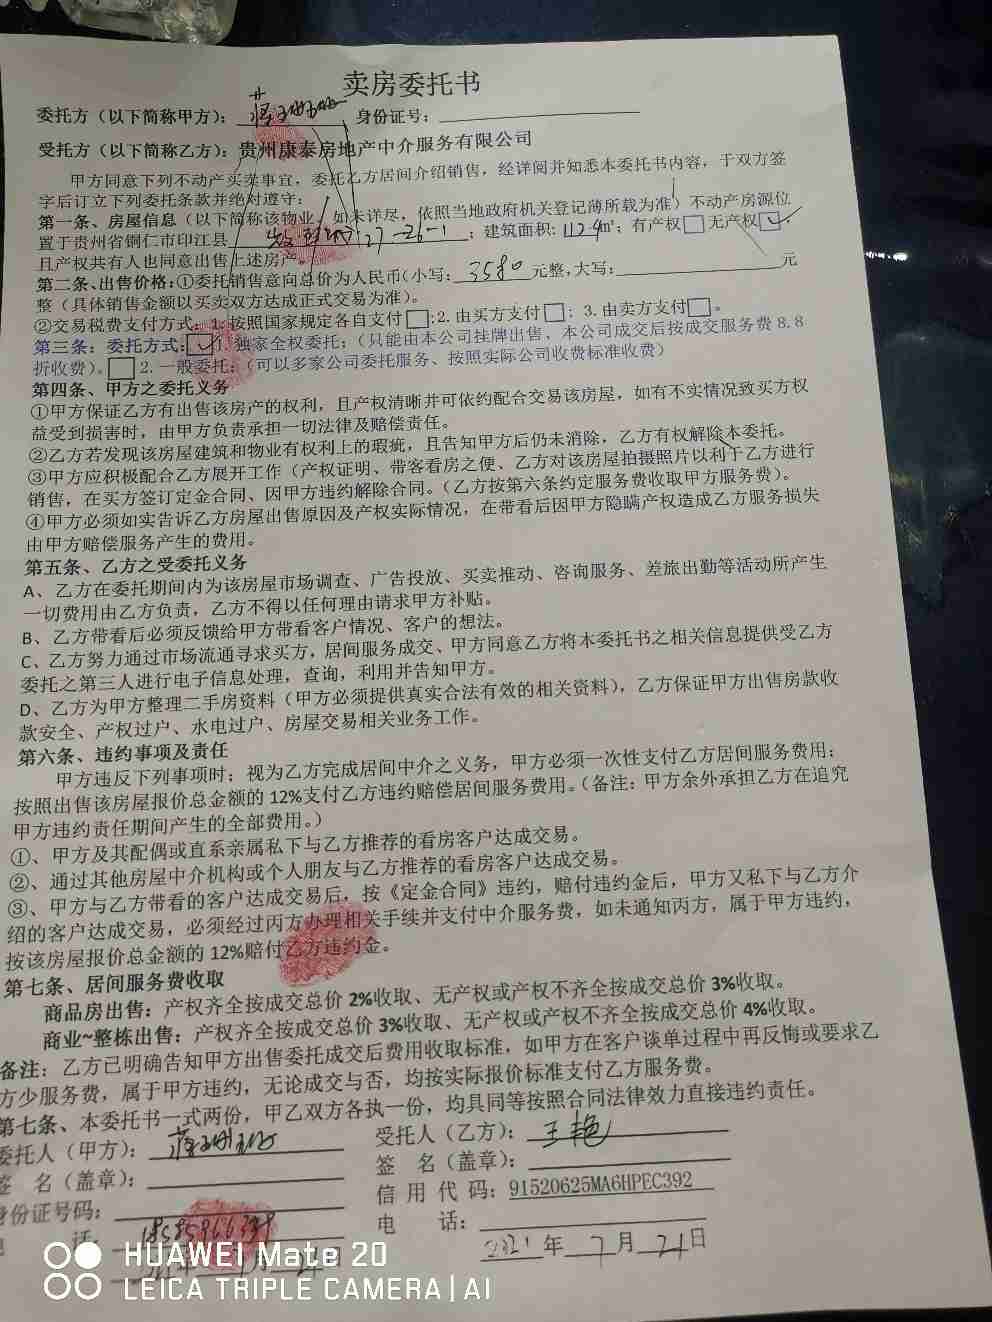 卖房委托书
委托方（以下简称甲方）： 身份证号：
受托方（以下简称乙方）：贵州康泰房地产中介服务有限公司
甲方同意下列不动产买卖事宜，委托乙方居间介绍销售，经详阅并知悉本委托书内容，于双方签
字后订立下列委托条款并绝对遵守：
第一条、房屋信息（以下简称该物业，如未详尽，依照当地政府机关登记薄所载为准）不动产房源位
置于贵州省铜仁市印江县 27-26-1；建筑面积：112.4㎡；有产权□无产权☑
且产权共有人也同意出售上述房产。
第二条、出售价格：①委托销售意向总价为人民币（小写：3580元整，大写： 元
整（具体销售金额以买卖双方达成正式交易为准）。
②交易税费支付方式：1.按照国家规定各自支付□：2.由买方支付□；3.由卖方支付□。
第三条：委托方式：☑1.独家全权委托：（只能由本公司挂牌出售，本公司成交后按成交服务费8.8
折收费）。□2.一般委托：（可以多家公司委托服务、按照实际公司收费标准收费）
第四条、甲方之委托义务
①甲方保证乙方有出售该房产的权利，且产权清晰并可依约配合交易该房屋，如有不实情况致买方权
益受到损害时，由甲方负责承担一切法律及赔偿责任。
②乙方若发现该房屋建筑和物业有权利上的瑕疵，且告知甲方后仍未消除，乙方有权解除本委托。
③甲方应积极配合乙方展开工作（产权证明、带客看房之便、乙方对该房屋拍摄照片以利于乙方进行
销售，在买方签订定金合同、因甲方违约解除合同。（乙方按第六条约定服务费收取甲方服务费）。
④甲方必须如实告诉乙方房屋出售原因及产权实际情况，在带看后因甲方隐瞒产权造成乙方服务损失
由甲方赔偿服务产生的费用。
第五条、乙方之受委托义务
A、乙方在委托期间内为该房屋市场调查、广告投放、买卖推动、咨询服务、差旅出勤等活动所产生
一切费用由乙方负责，乙方不得以任何理由请求甲方补贴。
B、乙方带看后必须反馈给甲方带看客户情况、客户的想法。
C、乙方努力通过市场流通寻求买方，居间服务成交、甲方同意乙方将本委托书之相关信息提供受乙方
委托之第三人进行电子信息处理，查询，利用并告知甲方。
D、乙方为甲方整理二手房资料（甲方必须提供真实合法有效的相关资料），乙方保证甲方出售房款收
款安全、产权过户、水电过户、房屋交易相关业务工作。
第六条、违约事项及责任
甲方违反下列事项时；视为乙方完成居间中介之义务，甲方必须一次性支付乙方居间服务费用；
按照出售该房屋报价总金额的12%支付乙方违约赔偿居间服务费用。（备注：甲方余外承担乙方在追究
甲方违约责任期间产生的全部费用。）
①、甲方及其配偶或直系亲属私下与乙方推荐的看房客户达成交易。
②、通过其他房屋中介机构或个人朋友与乙方推荐的看房客户达成交易。
③、甲方与乙方带看的客户达成交易后，按《定金合同》违约，赔付违约金后，甲方又私下与乙方介
绍的客户达成交易，必须经过丙方办理相关手续并支付中介服务费，如未通知丙方，属于甲方违约，
按该房屋报价总金额的12%赔付乙方违约金。
第七条、居间服务费收取
商品房出售：产权齐全按成交总价2%收取、无产权或产权不齐全按成交总价3%收取。
商业~整栋出售：产权齐全按成交总价3%收取、无产权或产权不齐全按成交总价4%收取。
备注：乙方已明确告知甲方出售委托成交后费用收取标准，如甲方在客户谈单过程中再反悔或要求乙
方少服务费，属于甲方违约，无论成交与否，均按实际报价标准支付乙方服务费。
第七条、本委托书一式两份，甲乙双方各执一份，均具同等按照合同法律效力直接违约责任。
委托人（甲方）： 受托人（乙方）：王艳
签 名（盖章）： 签 名（盖章）：
身份证号码： 信用代码：91520625MA6HPEC392
话： 电 话：
2021年7月21日
HUAWEI Mate 20
LEICA TRIPLE CAMERA | AI